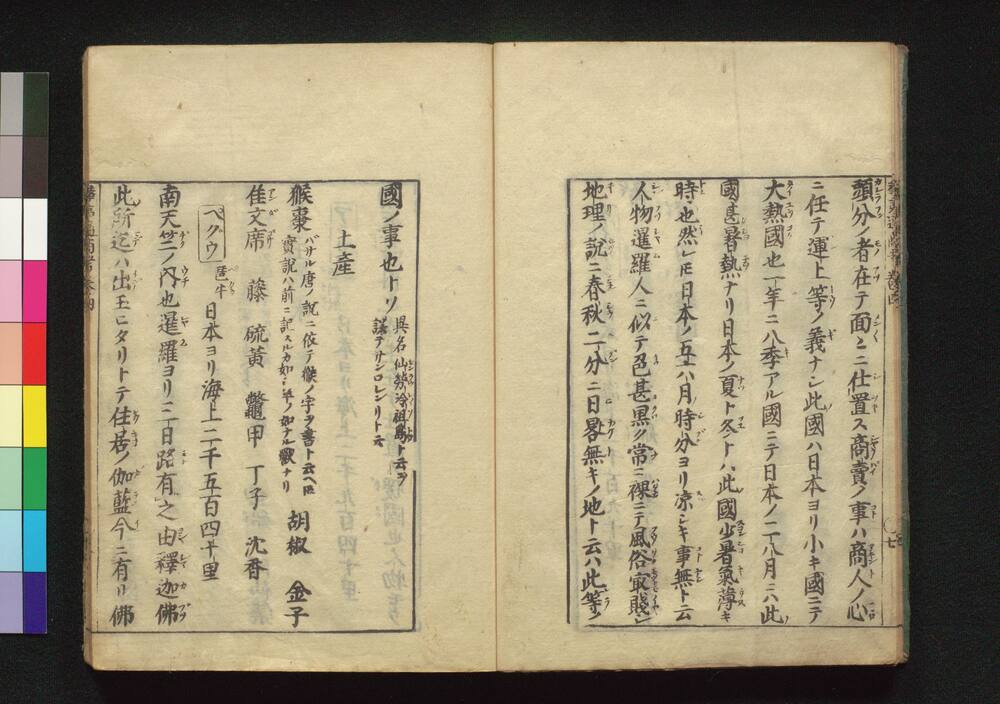 頭分ノ者在テ面々ニ仕置ス商賣ノ事ハ商人ノ心
ニ任テ運上等ノ義ナシ此國ハ日本ヨリ小キ國ニテ
大熱國也一年ニ八季アル國ニテ日本ノ二八月ニハ此
國甚暑熱ナリ日本ノ夏ト冬トハ此國少暑氣薄キ
時也然レ𪜈日本ノ五六八月時分ヨリ凉シキ事無ト云
人物暹羅人ニ似テ色甚黒ク常ニ裸ニテ風俗最賤シ
地理ノ説ニ春秋二分ニ日晷無キノ地ト云ハ此等ノ
國ノ事也トソ
異名
土産
猴棗
バサル唐ノ説ニ依テ猴ノ字ヲ書ト云ヘ𪜈
實説ハ前ニ記スルカ如シ
胡椒 金子
佳文席 藤 硫黄 鼈甲 丁子 沈香
ベグウ 琶牛 日本ヨリ海上二千五百四十里
南天竺ノ内也暹羅ヨリ三日路有之由釋迦佛
此所迄ハ出玉ヒタリトテ住居ノ伽藍今ニ有リ佛